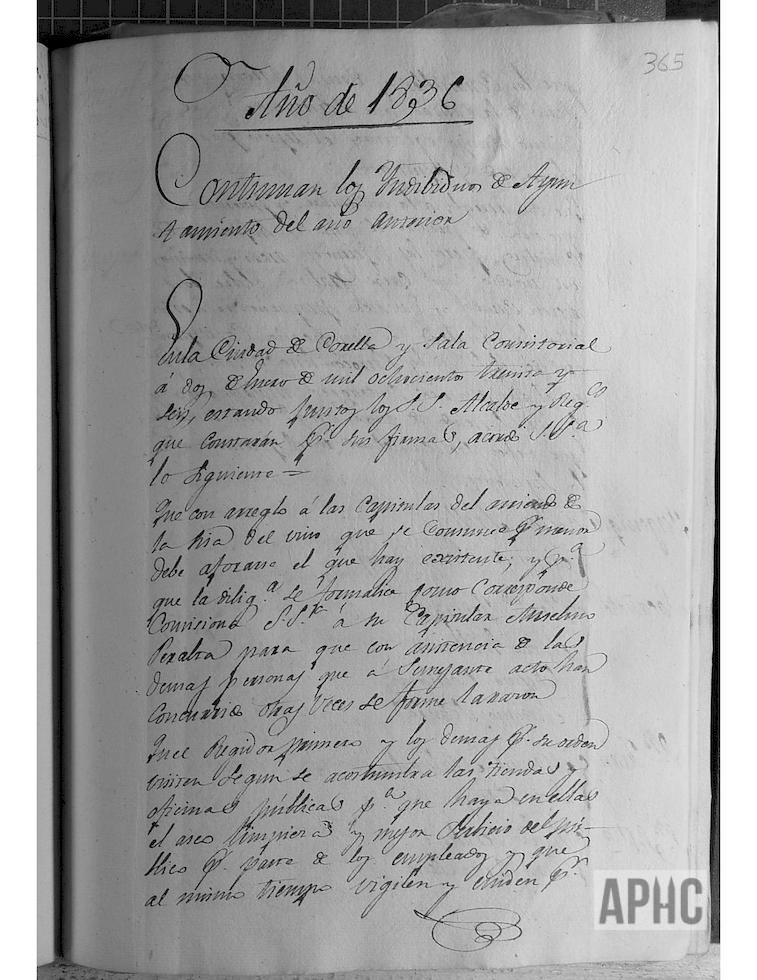 365
Año de 1836
Continuan los Yndibiduos de Ayun
tamiento del año anterior
En la Ciudad de Corella y Sala Consistorial
á dos de Enero de mil ochociento treinta y
seis, estando juntos los S.S. Alcalde y Reg.es
que constarán p.r sus firmas, acordó S.S.a
lo siguiente =
Que con arreglo á las Capitulas del arriendo de
la del vino que se Consume p.r menor
debe aforarse el que hay existente, y p.a
que la dilig.a se formalice como Corresponde
Comisiona S.S.a á su Capitular Anselmo
Peralta para que con asistencia de las
demas personas que á Semejante acto han
Concurrido otras veces se forme la razon
Que el Regidor primero y los demas p.r su orden
visiten segun se acostumbra las tiendas y
oficinas públicas p.a que haya en ellas
el aseo limpieza y mejor Serbicio del pú-
blico p.r parte de los empleados y que
al mismo tiempo vigilen y cuiden p.r
APHC